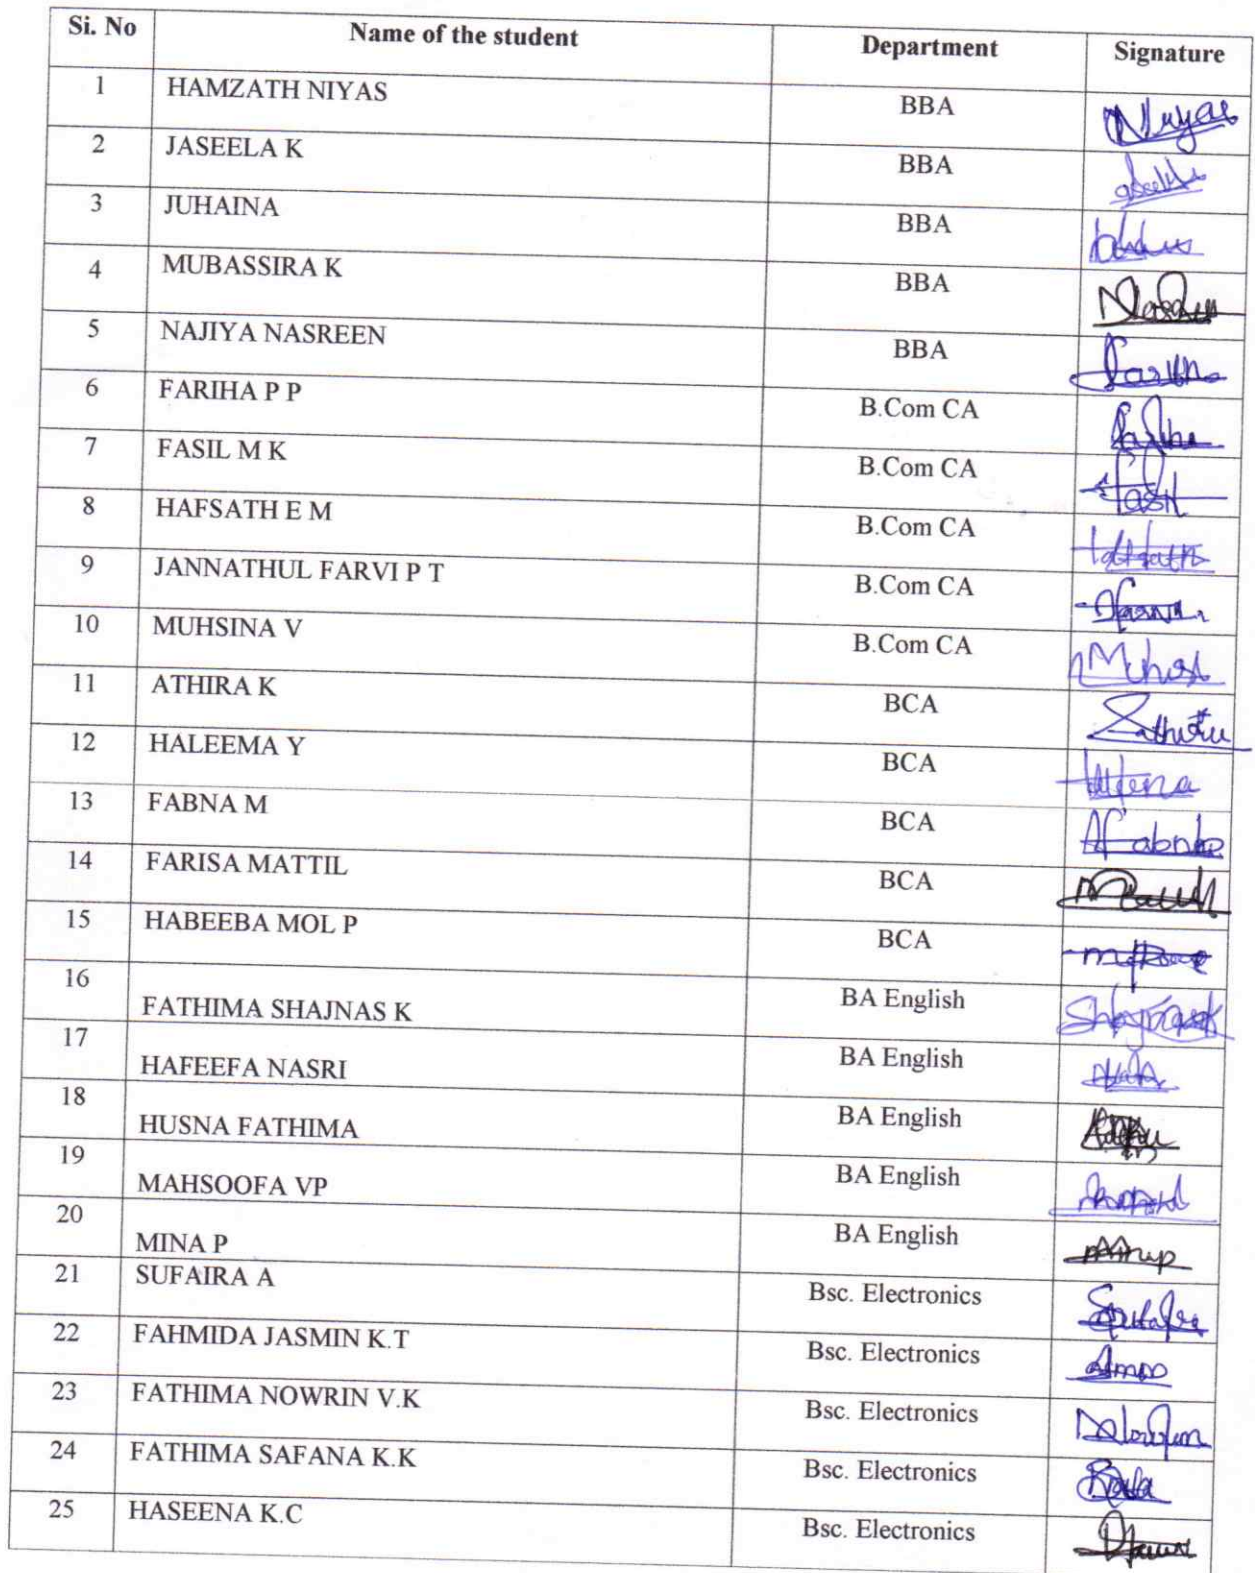 Si. No Name of the student Department Signature
1 HAMZATH NIYAS BBA Niyas
2 JASEELA K BBA
3 JUHAINA BBA
4 MUBASSIRA K BBA
5 NAJIYA NASREEN BBA
6 FARIHA P P B.Com CA
7 FASIL M K B.Com CA Fasil
8 HAFSATH E M B.Com CA
9 JANNATHUL FARVI P T B.Com CA
10 MUHSINA V B.Com CA
11 ATHIRA K BCA
12 HALEEMA Y BCA
13 FABNA M BCA
14 FARISA MATTIL BCA
15 HABEEBA MOL P BCA
16 FATHIMA SHAJNAS K BA English
17 HAFEEFA NASRI BA English
18 HUSNA FATHIMA BA English
19 MAHSOOFA VP BA English
20 MINA P BA English
21 SUFAIRA A Bsc. Electronics
22 FAHMIDA JASMIN K.T Bsc. Electronics
23 FATHIMA NOWRIN V.K Bsc. Electronics
24 FATHIMA SAFANA K.K Bsc. Electronics
25 HASEENA K.C Bsc. Electronics